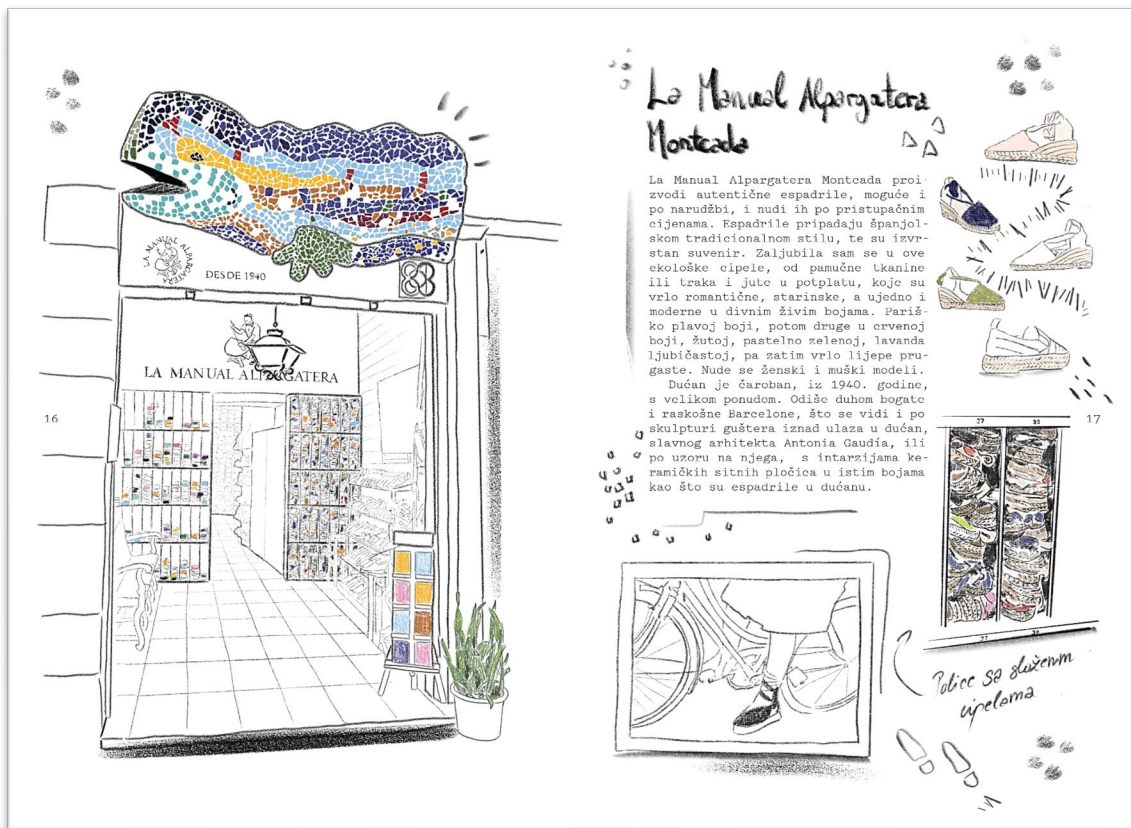 LA MANUAL ALPARGATERA
DESDE 1940
LA MANUAL ALPARGATERA
16
La Manual Alpargatera
Montcada
La Manual Alpargatera Montcada proi-
zvodi autentične espadrile, moguće i
po narudžbi, i nudi ih po pristupačnim
cijenama. Espadrile pripadaju španjol-
skom tradicionalnom stilu, te su izvr-
stan suvenir. Zaljubila sam se u ove
ekološke cipele, od pamučne tkanine
ili traka i jute u potplatu, koje su
vrlo romantične, starinske, a ujedno i
moderne u divnim živim bojama. Pariš-
ko plavoj boji, potom druge u crvenoj
boji, žutoj, pastelno zelenoj, lavanda
ljubičastoj, pa zatim vrlo lijepe pru-
gaste. Nude se ženski i muški modeli.
Dućan je čaroban, iz 1940. godine,
s velikom ponudom. Odiše duhom bogate
i raskošne Barcelone, što se vidi i po
skulpturi guštera iznad ulaza u dućan,
slavnog arhitekta Antonia Gaudía, ili
po uzoru na njega, s intarzijama ke-
ramičkih sitnih pločica u istim bojama
kao što su espadrile u dućanu.
17
37
Police sa složenim
cipelama